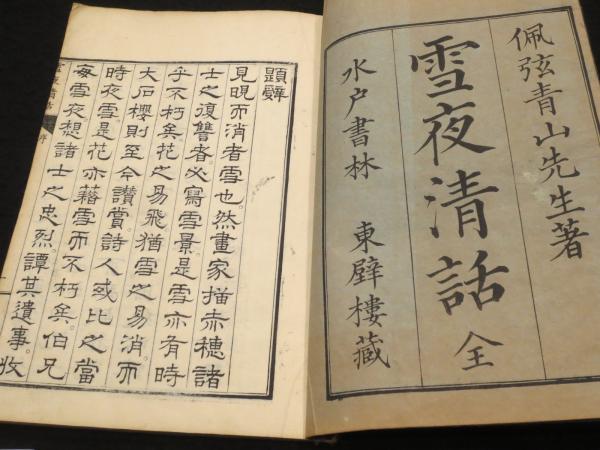 佩弦青山先生著
雪夜清話 全
水户書林 東壁樓藏
題辭
見晛而消者雪也。然畫家描赤穗諸
士之復讐者。必寫雪景。是雪亦有時
乎不朽矣。花之易飛。猶雪之易消。而
大石櫻則至今讃賞。詩人或比之當
時夜雪。是花亦藉雪而不朽矣。伯兄
每雪夜。想諸士之忠烈。譚其遺事。收